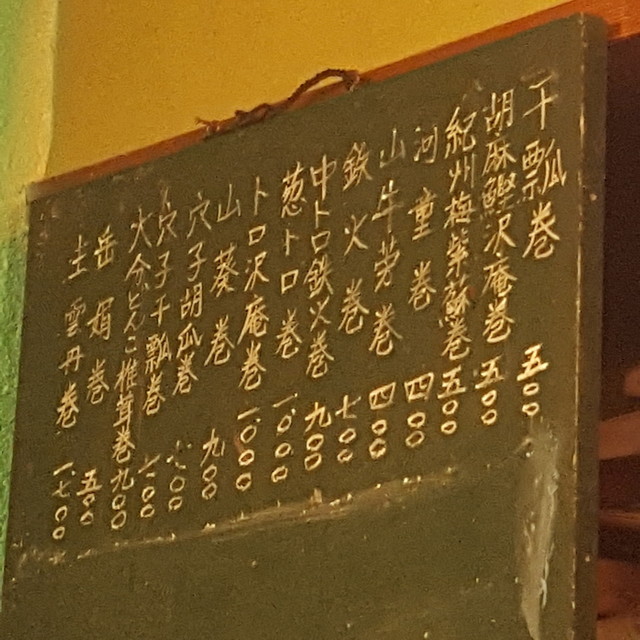 干瓢巻 五〇〇
胡麻鰹沢庵巻 五〇〇
紀州梅紫蘇巻 五〇〇
河童巻 四〇〇
山牛蒡巻 四〇〇
鉄火巻 七〇〇
中トロ鉄火巻 九〇〇
葱トロ巻 一、〇〇〇
トロ沢庵巻 一、〇〇〇
山葵巻 九〇〇
穴子胡瓜巻 七〇〇
穴子干瓢巻 七〇〇
椎茸巻 九〇〇
巻 五〇〇
雲丹巻 一、七〇〇